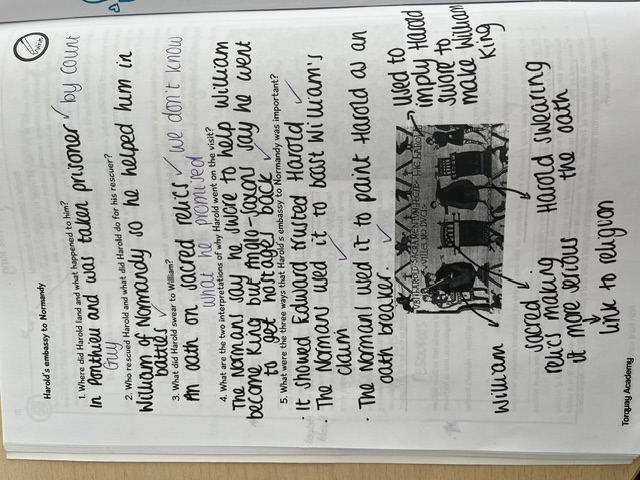 Harold's embassy to Normandy
1. Where did Harold land and what happened to him?
In Ponthieu and was taken prisoner by count
Guy
2. Who rescued Harold and what did Harold do for his rescuer?
William of Normandy so he helped him in
battles
3. What did Harold swear to William?
An oath on sacred relics we don't know
what he promised
4. What are the two interpretations of why Harold went on the visit?
The Normans say he swore to help William
become King but Anglo-Saxons say he went
to get hostages back
5. What were the three ways that Harold's embassy to Normandy was important?
· It showed Edward trusted Harold
· The Normans used it to boast William's
claim
· The Normans used it to paint Harold as an
oath breaker.
used to
imply Harold
swore to
make William
King
William
sacred
relics making
it more serious
link to religion
Harold swearing
the oath
Torquay Academy